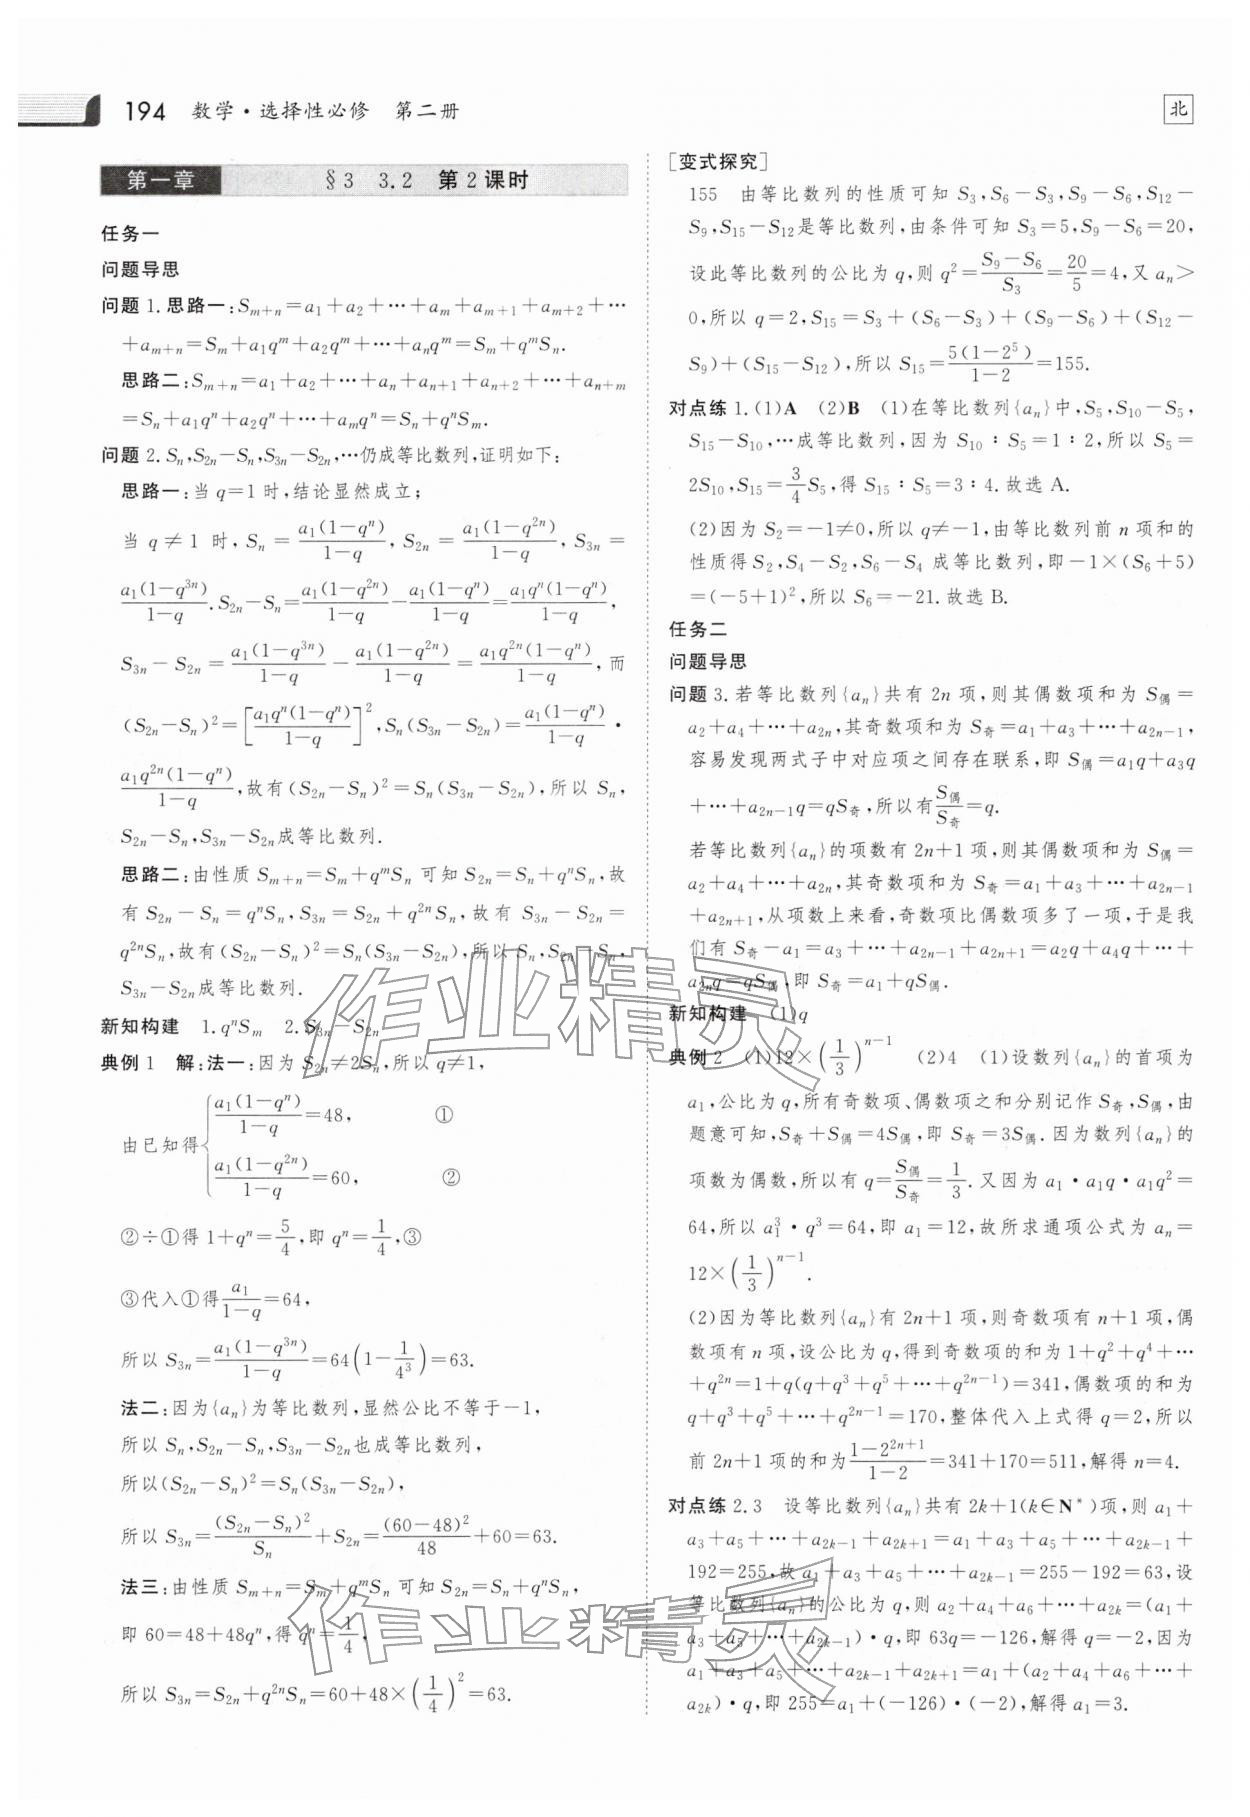 194 数学·选择性必修 第二册
北
第一章 §3 3.2 第2课时
任务一
问题导思
问题 1.思路一:Sₘ₊ₙ=a₁+a₂+…+aₘ+aₘ₊₁+aₘ₊₂+…
+aₘ₊ₙ=Sₘ+a₁qᵐ+a₂qᵐ+…+aₙqᵐ=Sₘ+qᵐSₙ.
思路二:Sₘ₊ₙ=a₁+a₂+…+aₙ+aₙ₊₁+aₙ₊₂+…+aₙ₊ₘ
=Sₙ+a₁qⁿ+a₂qⁿ+…+aₘqⁿ=Sₙ+qⁿSₘ.
问题 2.Sₙ,S₂ₙ-Sₙ,S₃ₙ-S₂ₙ,…仍成等比数列,证明如下:
思路一:当 q=1 时,结论显然成立;
当 q≠1 时,Sₙ=a₁(1-qⁿ)/(1-q),S₂ₙ=a₁(1-q²ⁿ)/(1-q),S₃ₙ=
a₁(1-q³ⁿ)/(1-q).S₂ₙ-Sₙ=a₁(1-q²ⁿ)/(1-q)-a₁(1-qⁿ)/(1-q)=a₁qⁿ(1-qⁿ)/(1-q),
S₃ₙ-S₂ₙ=a₁(1-q³ⁿ)/(1-q)-a₁(1-q²ⁿ)/(1-q)=a₁q²ⁿ(1-qⁿ)/(1-q),而
(S₂ₙ-Sₙ)²=[a₁qⁿ(1-qⁿ)/(1-q)]²,Sₙ(S₃ₙ-S₂ₙ)=a₁(1-qⁿ)/(1-q)·
a₁q²ⁿ(1-qⁿ)/(1-q),故有(S₂ₙ-Sₙ)²=Sₙ(S₃ₙ-S₂ₙ),所以 Sₙ,
S₂ₙ-Sₙ,S₃ₙ-S₂ₙ成等比数列.
思路二:由性质 Sₘ₊ₙ=Sₘ+qᵐSₙ 可知 S₂ₙ=Sₙ+qⁿSₙ,故
有 S₂ₙ-Sₙ=qⁿSₙ,S₃ₙ=S₂ₙ+q²ⁿSₙ,故有 S₃ₙ-S₂ₙ=
q²ⁿSₙ,故有(S₂ₙ-Sₙ)²=Sₙ(S₃ₙ-S₂ₙ),所以 Sₙ,S₂ₙ-Sₙ,
S₃ₙ-S₂ₙ成等比数列.
新知构建 1.qⁿSₘ 2.S₃ₙ-S₂ₙ
典例 1 解:法一:因为 S₂ₙ≠2Sₙ,所以 q≠1,
由已知得{a₁(1-qⁿ)/(1-q)=48, ①
a₁(1-q²ⁿ)/(1-q)=60, ②
②÷①得 1+qⁿ=5/4,即 qⁿ=1/4,③
③代入①得a₁/(1-q)=64,
所以 S₃ₙ=a₁(1-q³ⁿ)/(1-q)=64(1-1/4³)=63.
法二:因为{aₙ}为等比数列,显然公比不等于-1,
所以 Sₙ,S₂ₙ-Sₙ,S₃ₙ-S₂ₙ也成等比数列,
所以(S₂ₙ-Sₙ)²=Sₙ(S₃ₙ-S₂ₙ),
所以 S₃ₙ=(S₂ₙ-Sₙ)²/Sₙ+S₂ₙ=(60-48)²/48+60=63.
法三:由性质 Sₘ₊ₙ=Sₘ+qᵐSₙ 可知 S₂ₙ=Sₙ+qⁿSₙ,
即 60=48+48qⁿ,得 qⁿ=1/4,
所以 S₃ₙ=S₂ₙ+q²ⁿSₙ=60+48×(1/4)²=63.
[变式探究]
155 由等比数列的性质可知 S₃,S₆-S₃,S₉-S₆,S₁₂-
S₉,S₁₅-S₁₂是等比数列,由条件可知 S₃=5,S₉-S₆=20,
设此等比数列的公比为 q,则 q²=(S₉-S₆)/S₃=20/5=4,又 aₙ>
0,所以 q=2,S₁₅=S₃+(S₆-S₃)+(S₉-S₆)+(S₁₂-
S₉)+(S₁₅-S₁₂),所以 S₁₅=5(1-2⁵)/(1-2)=155.
对点练 1.(1)A (2)B (1)在等比数列{aₙ}中,S₅,S₁₀-S₅,
S₁₅-S₁₀,…成等比数列,因为 S₁₀∶S₅=1∶2,所以 S₅=
2S₁₀,S₁₅=3/4S₅,得 S₁₅∶S₅=3∶4.故选 A.
(2)因为 S₂=-1≠0,所以 q≠-1,由等比数列前 n 项和的
性质得 S₂,S₄-S₂,S₆-S₄ 成等比数列,即-1×(S₆+5)
=(-5+1)²,所以 S₆=-21.故选 B.
任务二
问题导思
问题 3.若等比数列{aₙ}共有 2n 项,则其偶数项和为 S偶=
a₂+a₄+…+a₂ₙ,其奇数项和为 S奇=a₁+a₃+…+a₂ₙ₋₁,
容易发现两式子中对应项之间存在联系,即 S偶=a₁q+a₃q
+…+a₂ₙ₋₁q=qS奇,所以有S偶/S奇=q.
若等比数列{aₙ}的项数有 2n+1 项,则其偶数项和为 S偶=
a₂+a₄+…+a₂ₙ,其奇数项和为 S奇=a₁+a₃+…+a₂ₙ₋₁
+a₂ₙ₊₁,从项数上来看,奇数项比偶数项多了一项,于是我
们有 S奇-a₁=a₃+…+a₂ₙ₋₁+a₂ₙ₊₁=a₂q+a₄q+…+
a₂ₙq=qS偶,即 S奇=a₁+qS偶.
新知构建 (1)q
典例 2 (1)12×(1/3)ⁿ⁻¹ (2)4 (1)设数列{aₙ}的首项为
a₁,公比为 q,所有奇数项、偶数项之和分别记作 S奇,S偶,由
题意可知,S奇+S偶=4S偶,即 S奇=3S偶.因为数列{aₙ}的
项数为偶数,所以有 q=S偶/S奇=1/3.又因为 a₁·a₁q·a₁q²=
64,所以 a₁³·q³=64,即 a₁=12,故所求通项公式为 aₙ=
12×(1/3)ⁿ⁻¹.
(2)因为等比数列{aₙ}有 2n+1 项,则奇数项有 n+1 项,偶
数项有 n 项,设公比为 q,得到奇数项的和为 1+q²+q⁴+…
+q²ⁿ=1+q(q+q³+q⁵+…+q²ⁿ⁻¹)=341,偶数项的和为
q+q³+q⁵+…+q²ⁿ⁻¹=170,整体代入上式得 q=2,所以
前 2n+1 项的和为(1-2²ⁿ⁺¹)/(1-2)=341+170=511,解得 n=4.
对点练 2.3 设等比数列{aₙ}共有 2k+1(k∈N*)项,则 a₁+
a₃+a₅+…+a₂ₖ₋₁+a₂ₖ₊₁=a₁+a₃+a₅+…+a₂ₖ₋₁+
192=255,故 a₁+a₃+a₅+…+a₂ₖ₋₁=255-192=63,设
等比数列{aₙ}的公比为 q,则 a₂+a₄+a₆+…+a₂ₖ=(a₁+
a₃+a₅+…+a₂ₖ₋₁)·q,即 63q=-126,解得 q=-2,因为
a₁+a₃+a₅+…+a₂ₖ₋₁+a₂ₖ₊₁=a₁+(a₂+a₄+a₆+…+
a₂ₖ)·q,即 255=a₁+(-126)·(-2),解得 a₁=3.
作业精灵
作业精灵